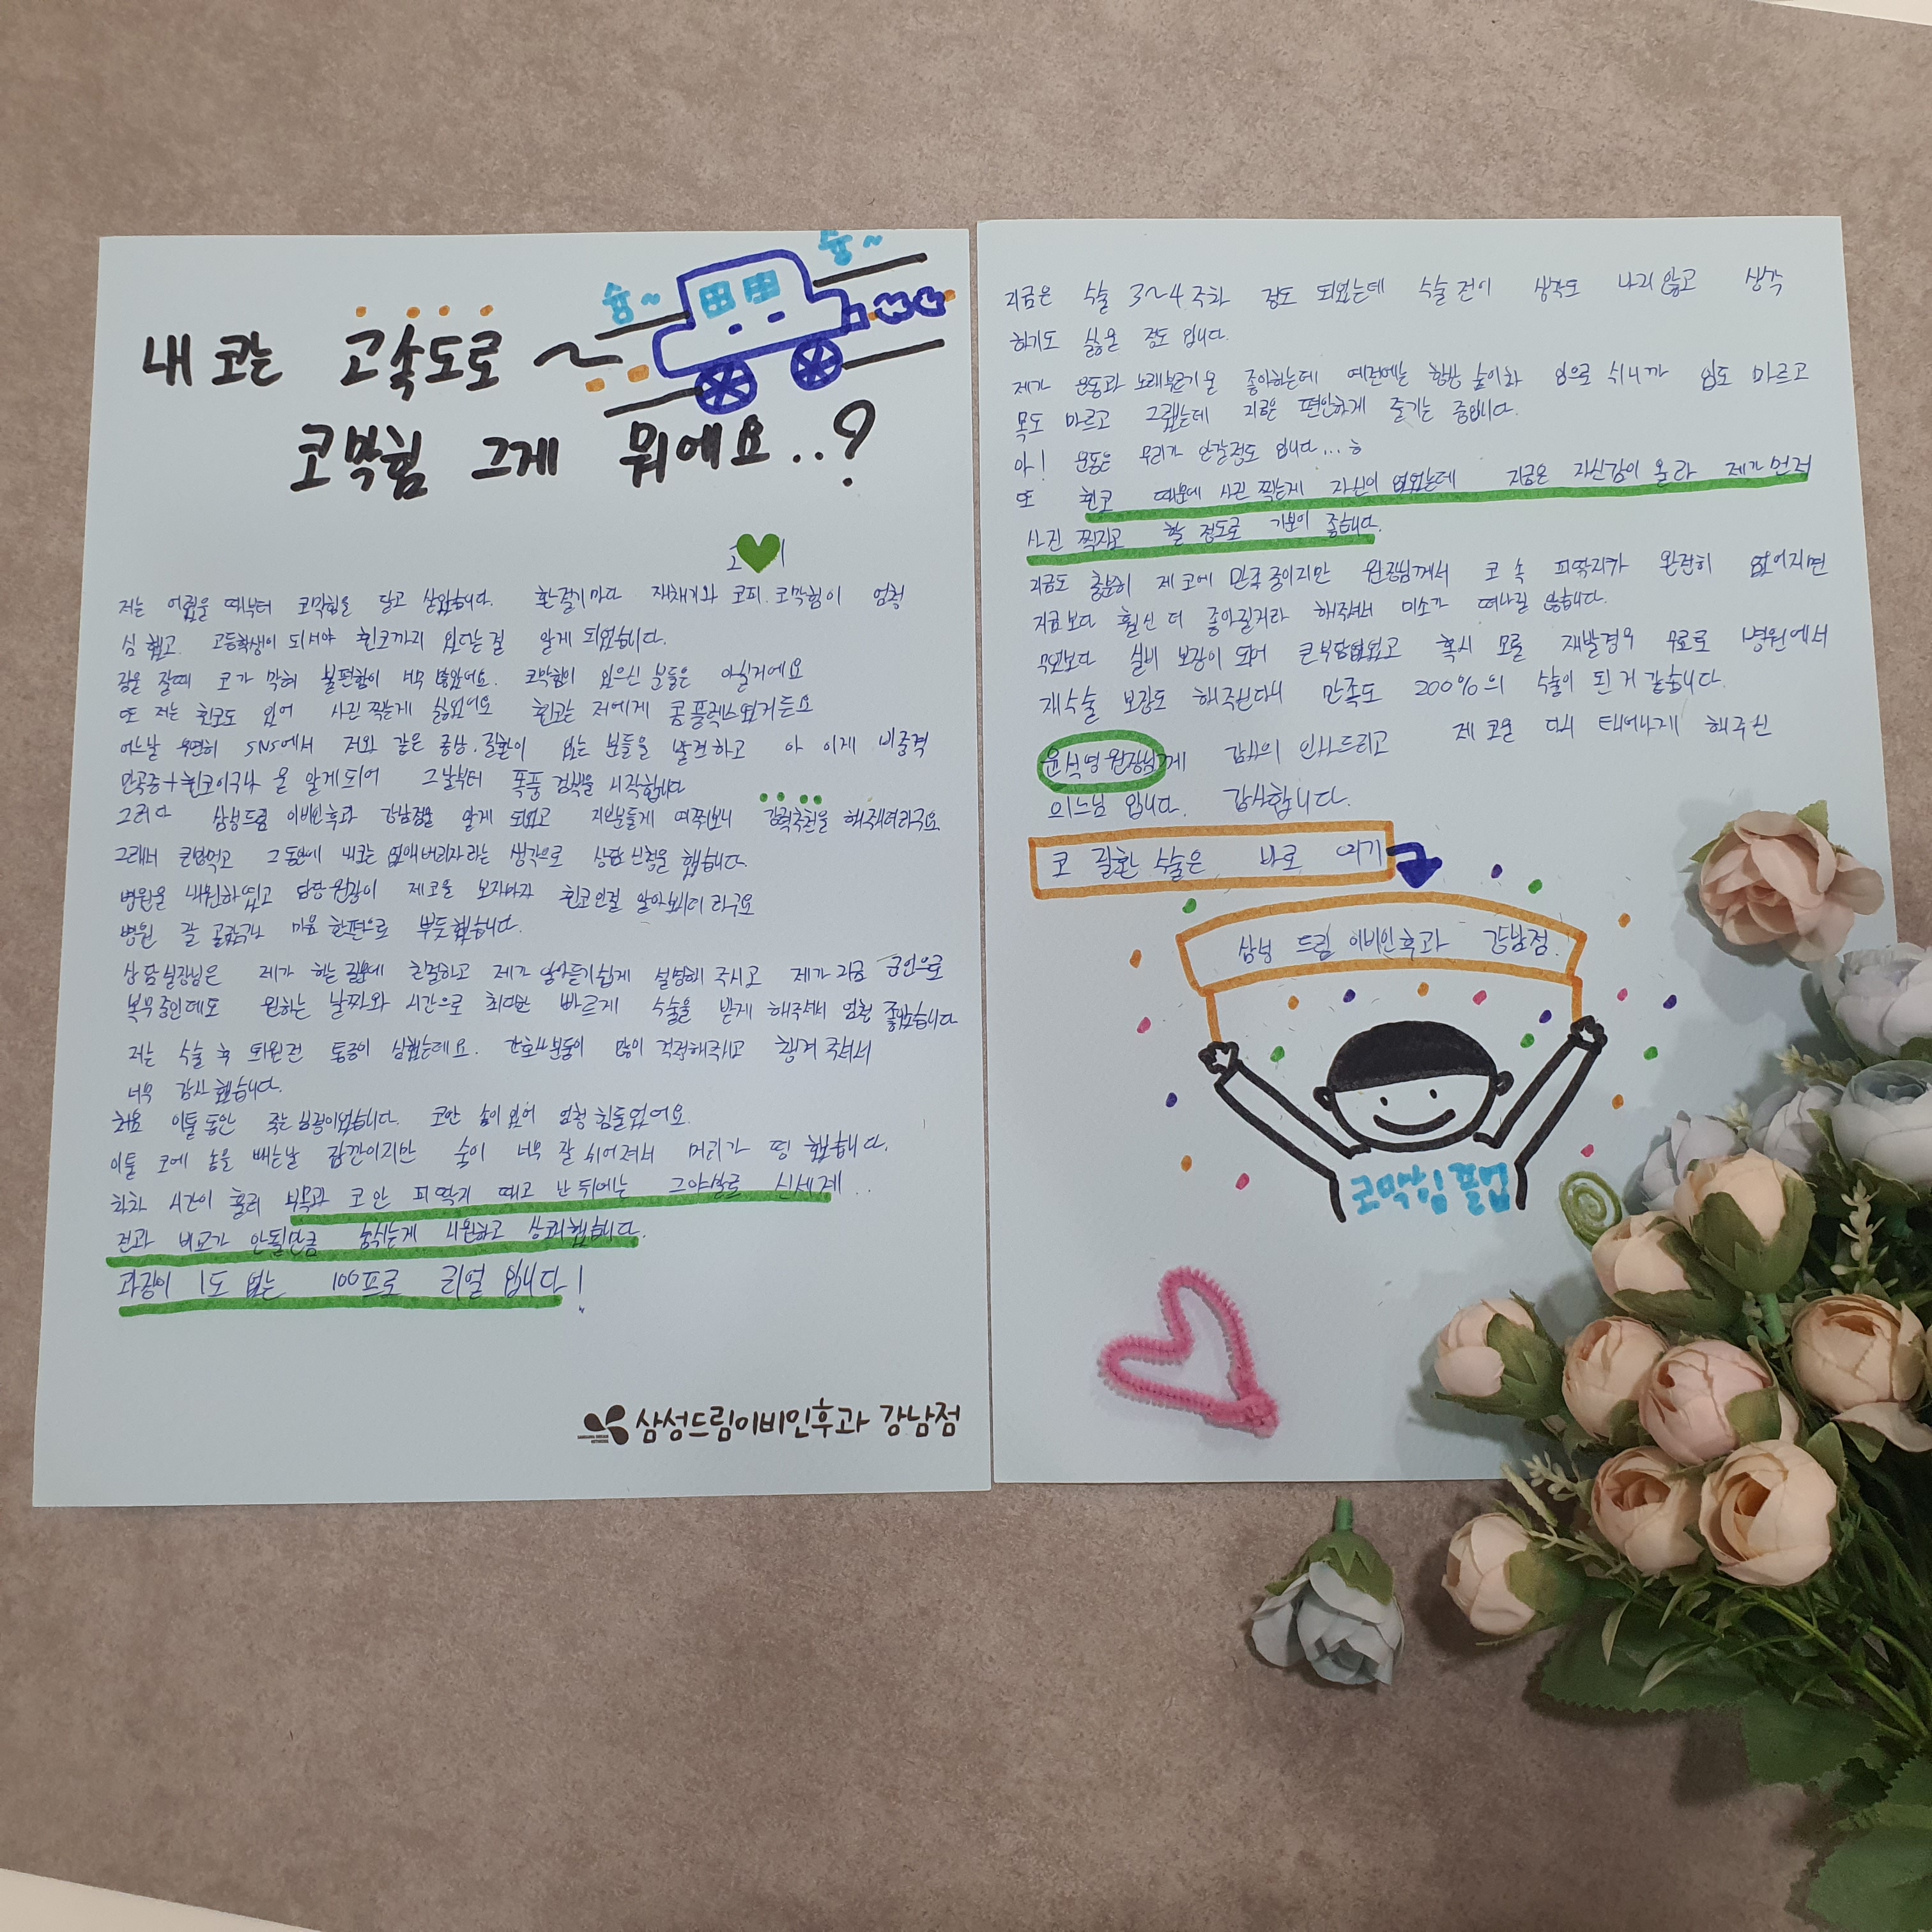 슝~
슝~
내 코는 고속도로 ~
코막힘 그게 뭐에요..?
고 이
저는 어렸을 때부터 코막힘을 달고 살았습니다. 환절기마다 재채기와 코피. 코막힘이 엄청
심했고. 고등학생이 되서야 휜코까지 있다는걸 알게 되었습니다.
잠을 잘때 코가 막혀 불편함이 너무 많았어요. 코막힘이 있으신 분들은 아실거에요
또 저는 휜코도 있어 사진 찍는게 싫었어요 휜코는 저에게 콤플렉스였거든요
어느날 우연히 SNS에서 저와 같은 증상.질환이 있는 분들을 발견하고 아 이게 비중격
만곡증+휜코이구나 을 알게되어 그날부터 폭풍 검색을 시작합니다
그러다 삼성드림 이비인후과 강남점을 알게 되었고 지인분들게 여쭤보니 강력추천을 해주더라구요
그래서 큰맘먹고 그동안에 내코는 없애버리자라는 생각으로 상담 신청을 했습니다.
병원을 내원하였고 담당 원장이 제코를 보자마자 휜코인걸 알아보시더라구요
병원 잘 골랐구나 마음 한편으로 뿌듯했습니다.
상담실장님은 제가 하는 질문에 친절하고 제가 알아듣기쉽게 설명해 주시고 제가 지금 군인으로
복무중인데도 원하는 날짜와 시간으로 최대한 빠르게 수술을 받게 해주셔서 엄청 좋았습니다
저는 수술 후 퇴원전 통증이 심했는데요. 간호사분들이 많이 걱정해주시고 챙겨 주셔서
너무 감사했습니다.
처음 이틀동안 죽는 심정이었습니다. 코안 솜이 있어 엄청 힘들었어요.
이틀 코에 솜을 빼는날 잠깐이지만 숨이 너무 잘 쉬어져서 머리가 띵 했습니다.
차차 시간이 흘러 부목과 코 안 피딱지 떼고 난 뒤에는 그야말로 신세계..
전과 비교가 안될만큼 숨쉬는게 시원하고 상쾌했습니다.
과장이 1도 없는 100프로 리얼 입니다!
삼성드림이비인후과 강남점
지금은 수술 3~4주차 정도 되었는데 수술 전이 생각도 나지않고 생각
하기도 싫은 정도 입니다.
제가 운동과 노래부르기를 좋아하는데 예전에는 항상 숨이차 입으로 쉬니까 입도 마르고
목도 마르고 그랬는데 지금은 편안하게 즐기는 중입니다.
아! 운동은 무리가 안갈정도 입니다...ㅎ
또 휜코 때문에 사진 찍는게 자신이 없었는데 지금은 자신감이 올라 제가먼저
사진 찍자고 할 정도로 기분이 좋습니다.
지금도 충분히 제 코에 만족 중이지만 원장님께서 코 속 피딱지가 완전히 없어지면
지금보다 훨씬 더 좋아질거라 해주셔서 미소가 떠나질 않습니다.
무엇보다 실비 보장이 되어 큰부담없었고 혹시 모를 재발경우 무료로 병원에서
재수술 보장도 해주신다니 만족도 200%의 수술이 된 거 같습니다.
윤석영원장님께 감사의 인사드리고 제 코를 다시 태어나게 해주신
의느님 입니다. 감사합니다.
코 질환 수술은 바로 여기
삼성 드림 이비인후과 강남점.
코막힘 졸업